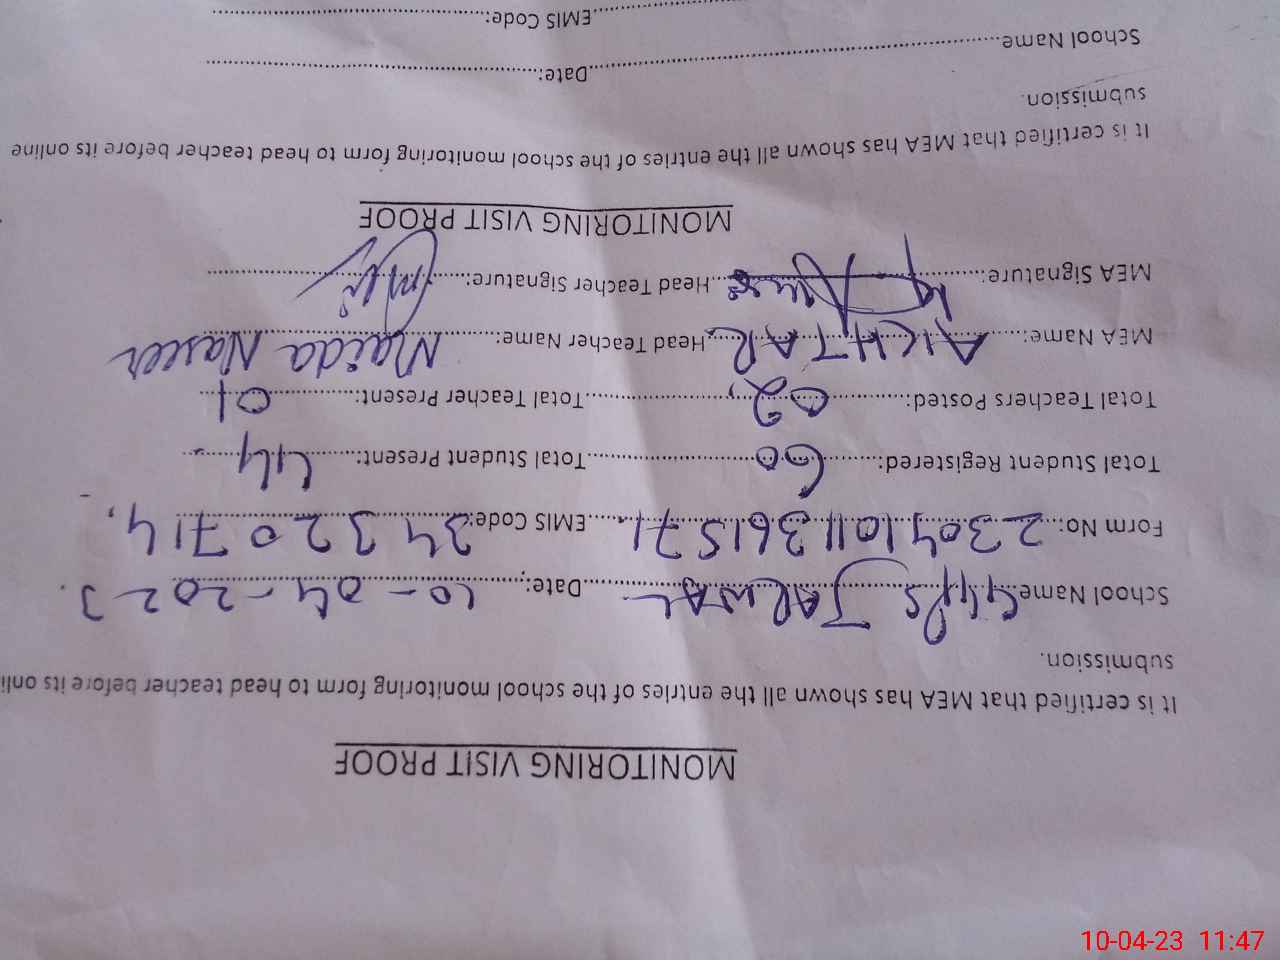 MONITORING VISIT PROOF
It is certified that MEA has shown all the entries of the school monitoring form to head teacher before its onli
submission.
School Name GGPS JARWAL Date: 10-04-2023.
Form No: 23041011361571 EMIS Code: 34320714,
Total Student Registered: 60 Total Student Present: 44
Total Teachers Posted: 02, Total Teacher Present: 01
MEA Name: AKHTAR Head Teacher Name: Maida Naseer
MEA Signature: Head Teacher Signature:
MONITORING VISIT PROOF
It is certified that MEA has shown all the entries of the school monitoring form to head teacher before its online
submission.
School Name Date:
EMIS Code:
10-04-23 11:47